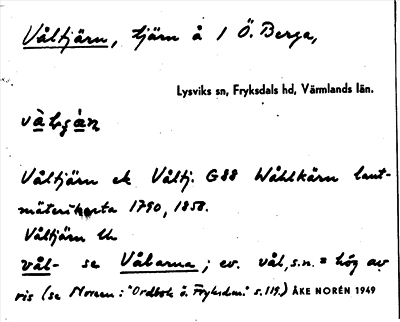 Våltjärn, tjärn å 1 Ö. Berga,
Lysviks sn, Fryksdals hd, Värmlands län.
Våltjärn ek Våltj. G88 Wåhlkärn lant-
mäterikarta 1790, 1858.
Våltjärn Uh
vål- se Vålarna; ev. vål, s.n. = hög av
ris (se Noreen: "Ordbok ö. Fryksdal." s. 119.) ÅKE NORÉN 1949